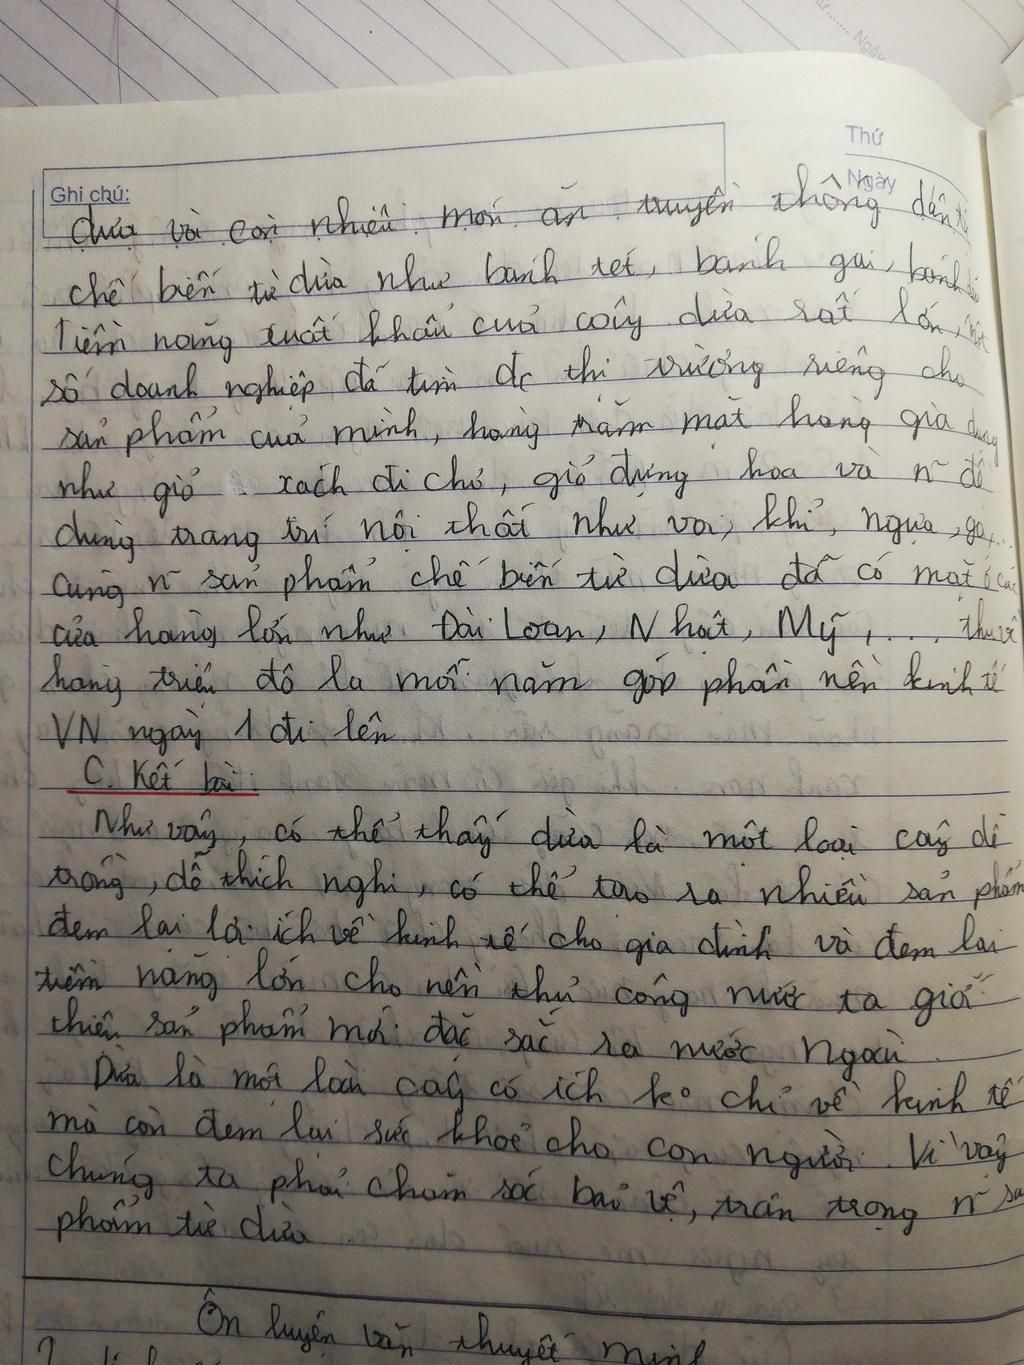 Thứ
Ngày
Ghi chú:
dừa và còn nhiều món ăn truyền thống dân
chế biến từ dừa như bánh tét, bánh gai, bánh
Tiềm năng xuất khẩu của cây dừa rất lớn, một
số doanh nghiệp đã tìm đc thị trường riêng cho
sản phẩm của mình, hàng trăm mặt hàng gia dụng
như giỏ xách đi chợ, giỏ đựng hoa và n~ đồ
dùng trang trí nội thất như voi, khỉ, ngựa, gà,...
cùng n~ sản phẩm chế biến từ dừa đã có mặt ở các
cửa hàng lớn như Đài Loan, Nhật, Mỹ,... thu về
hàng triệu đô la mỗi năm góp phần nền kinh tế
VN ngày 1 đi lên
C. Kết bài:
Như vậy, có thể thấy dừa là một loại cây dễ
trồng, dễ thích nghi, có thể tạo ra nhiều sản phẩm
đem lại lợi ích về kinh tế cho gia đình và đem lại
tiềm năng lớn cho nền thủ công nước ta giới
thiệu sản phẩm mới đặc sắc ra nước ngoài
Dừa là một loài cây có ích ko chỉ về kinh tế
mà còn đem lại sức khoẻ cho con người. Vì vậy
chúng ta phải chăm sóc bảo vệ, trân trọng n~ sản
phẩm từ dừa
Ôn luyện văn thuyết minh